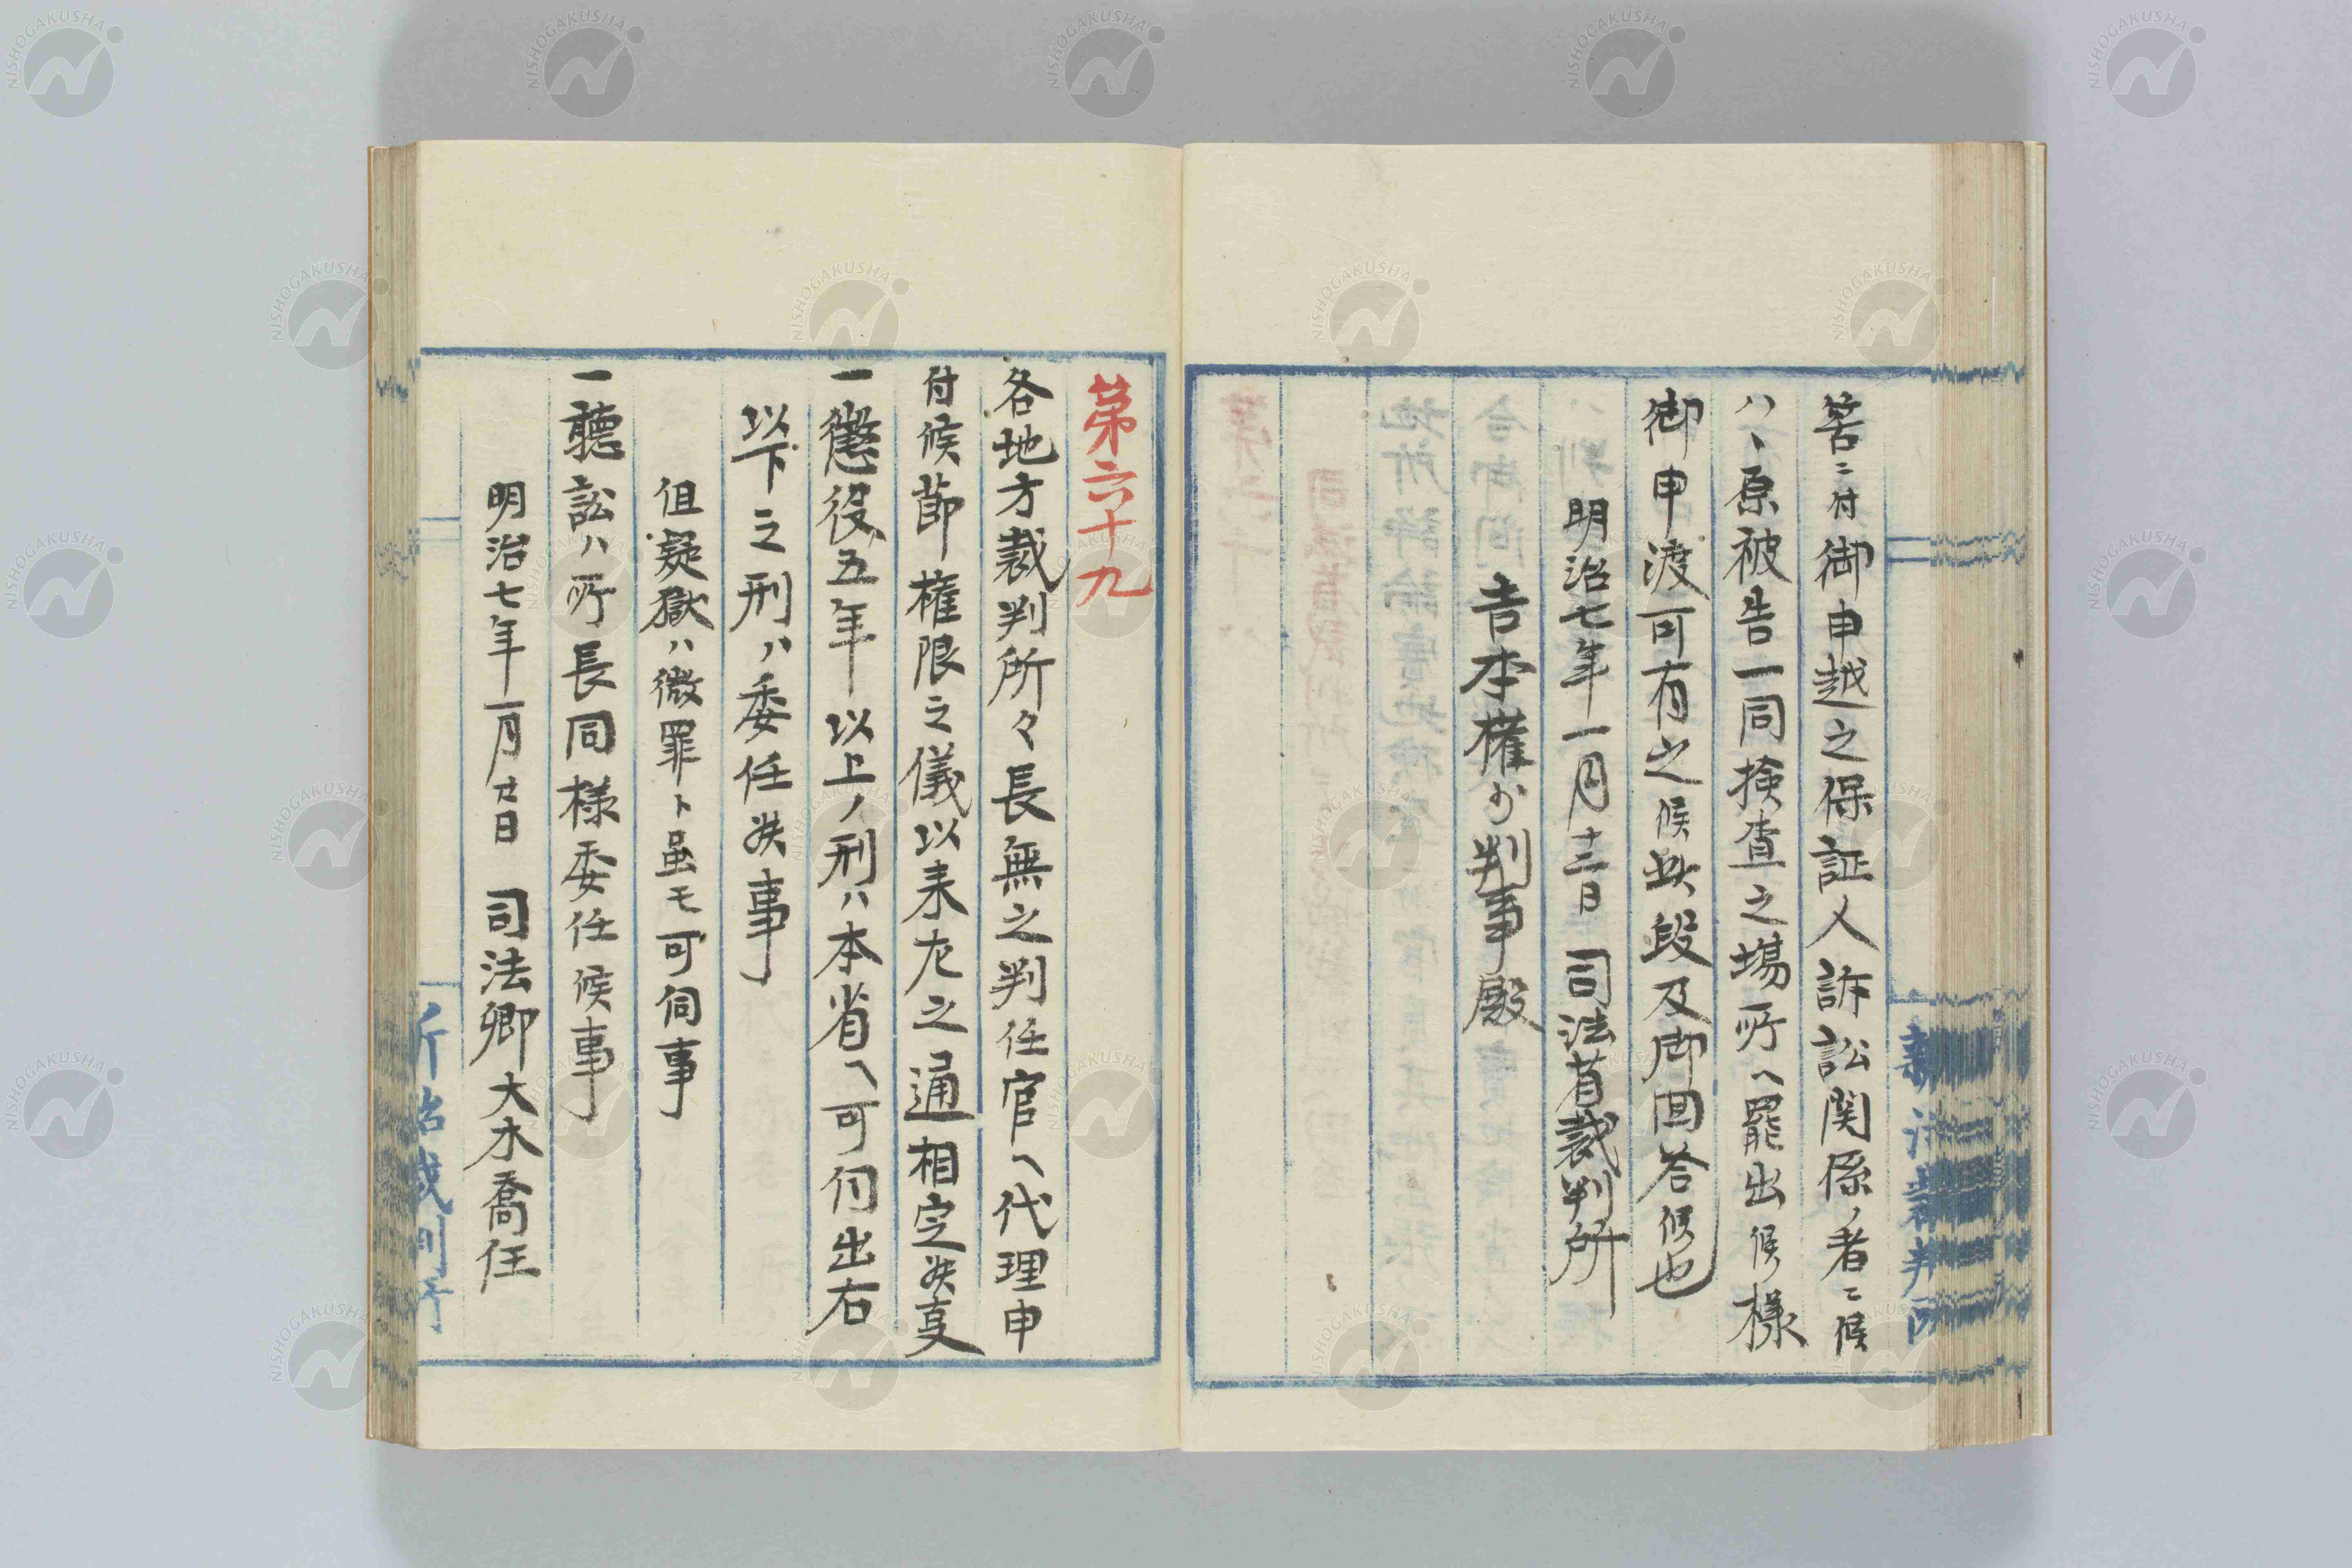 筈ニ付御申越之保証人訴訟関係ノ者ニ候
ハヽ原被告一同検査之場所ヘ罷出候様
御申渡可有之候此段及御回答候也
明治七年一月十二日 司法省裁判所
吉本権少判事殿
第六十九
各地方裁判所々長無之判任官ヘ代理申
付候節権限之儀以来左之通相定候事
一懲役五年以上ノ刑ハ本省ヘ可伺出右
以下之刑ハ委任候事
但疑獄ハ微罪ト虽モ可伺事
一聴訟ハ所長同様委任候事
明治七年一月廿日 司法卿大木喬任
新治裁判所
NISHOGAKUSHA